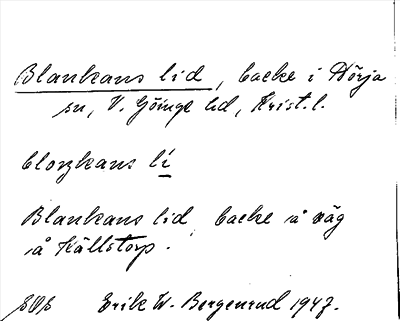 Blankans lid, backe i Nörja
sn, V. Göinge hd, Krist. l.
blaŋkans lí
Blankans lid backe å väg
å Källstorp.
Erik W. Bergenrud 1947.